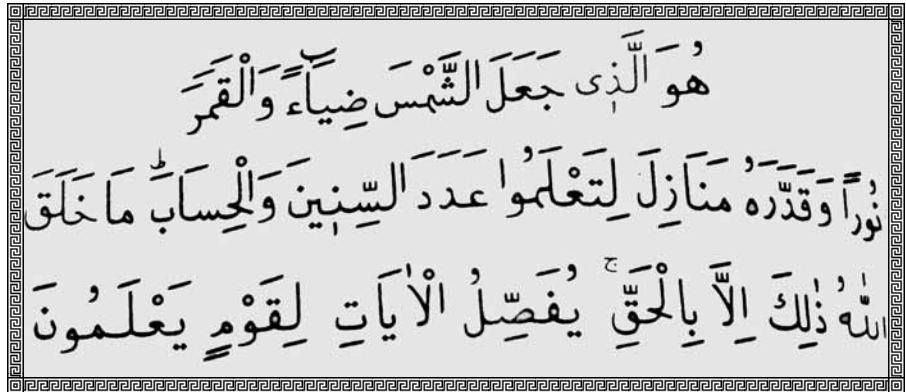 هُوَ الَّذٖى جَعَلَ الشَّمْسَ ضِيَٓاءً وَالْقَمَرَ
نُورًا وَقَدَّرَهُ مَنَازِلَ لِتَعْلَمُوا عَدَدَ السِّنٖينَ وَالْحِسَابَؕ مَا خَلَقَ
اللّٰهُ ذٰلِكَ اِلَّا بِالْحَقِّۚ يُفَصِّلُ الْاٰيَاتِ لِقَوْمٍ يَعْلَمُونَ